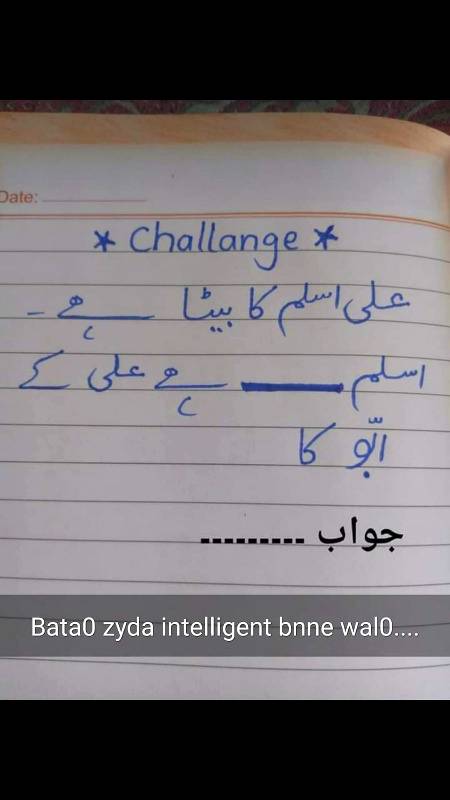 Date:
* Challange *
علی اسلم کا بیٹا ہے ۔
اسلم ــــــ ہے علی کے
ابّو کا
جواب .........
Bata0 zyda intelligent bnne wal0....